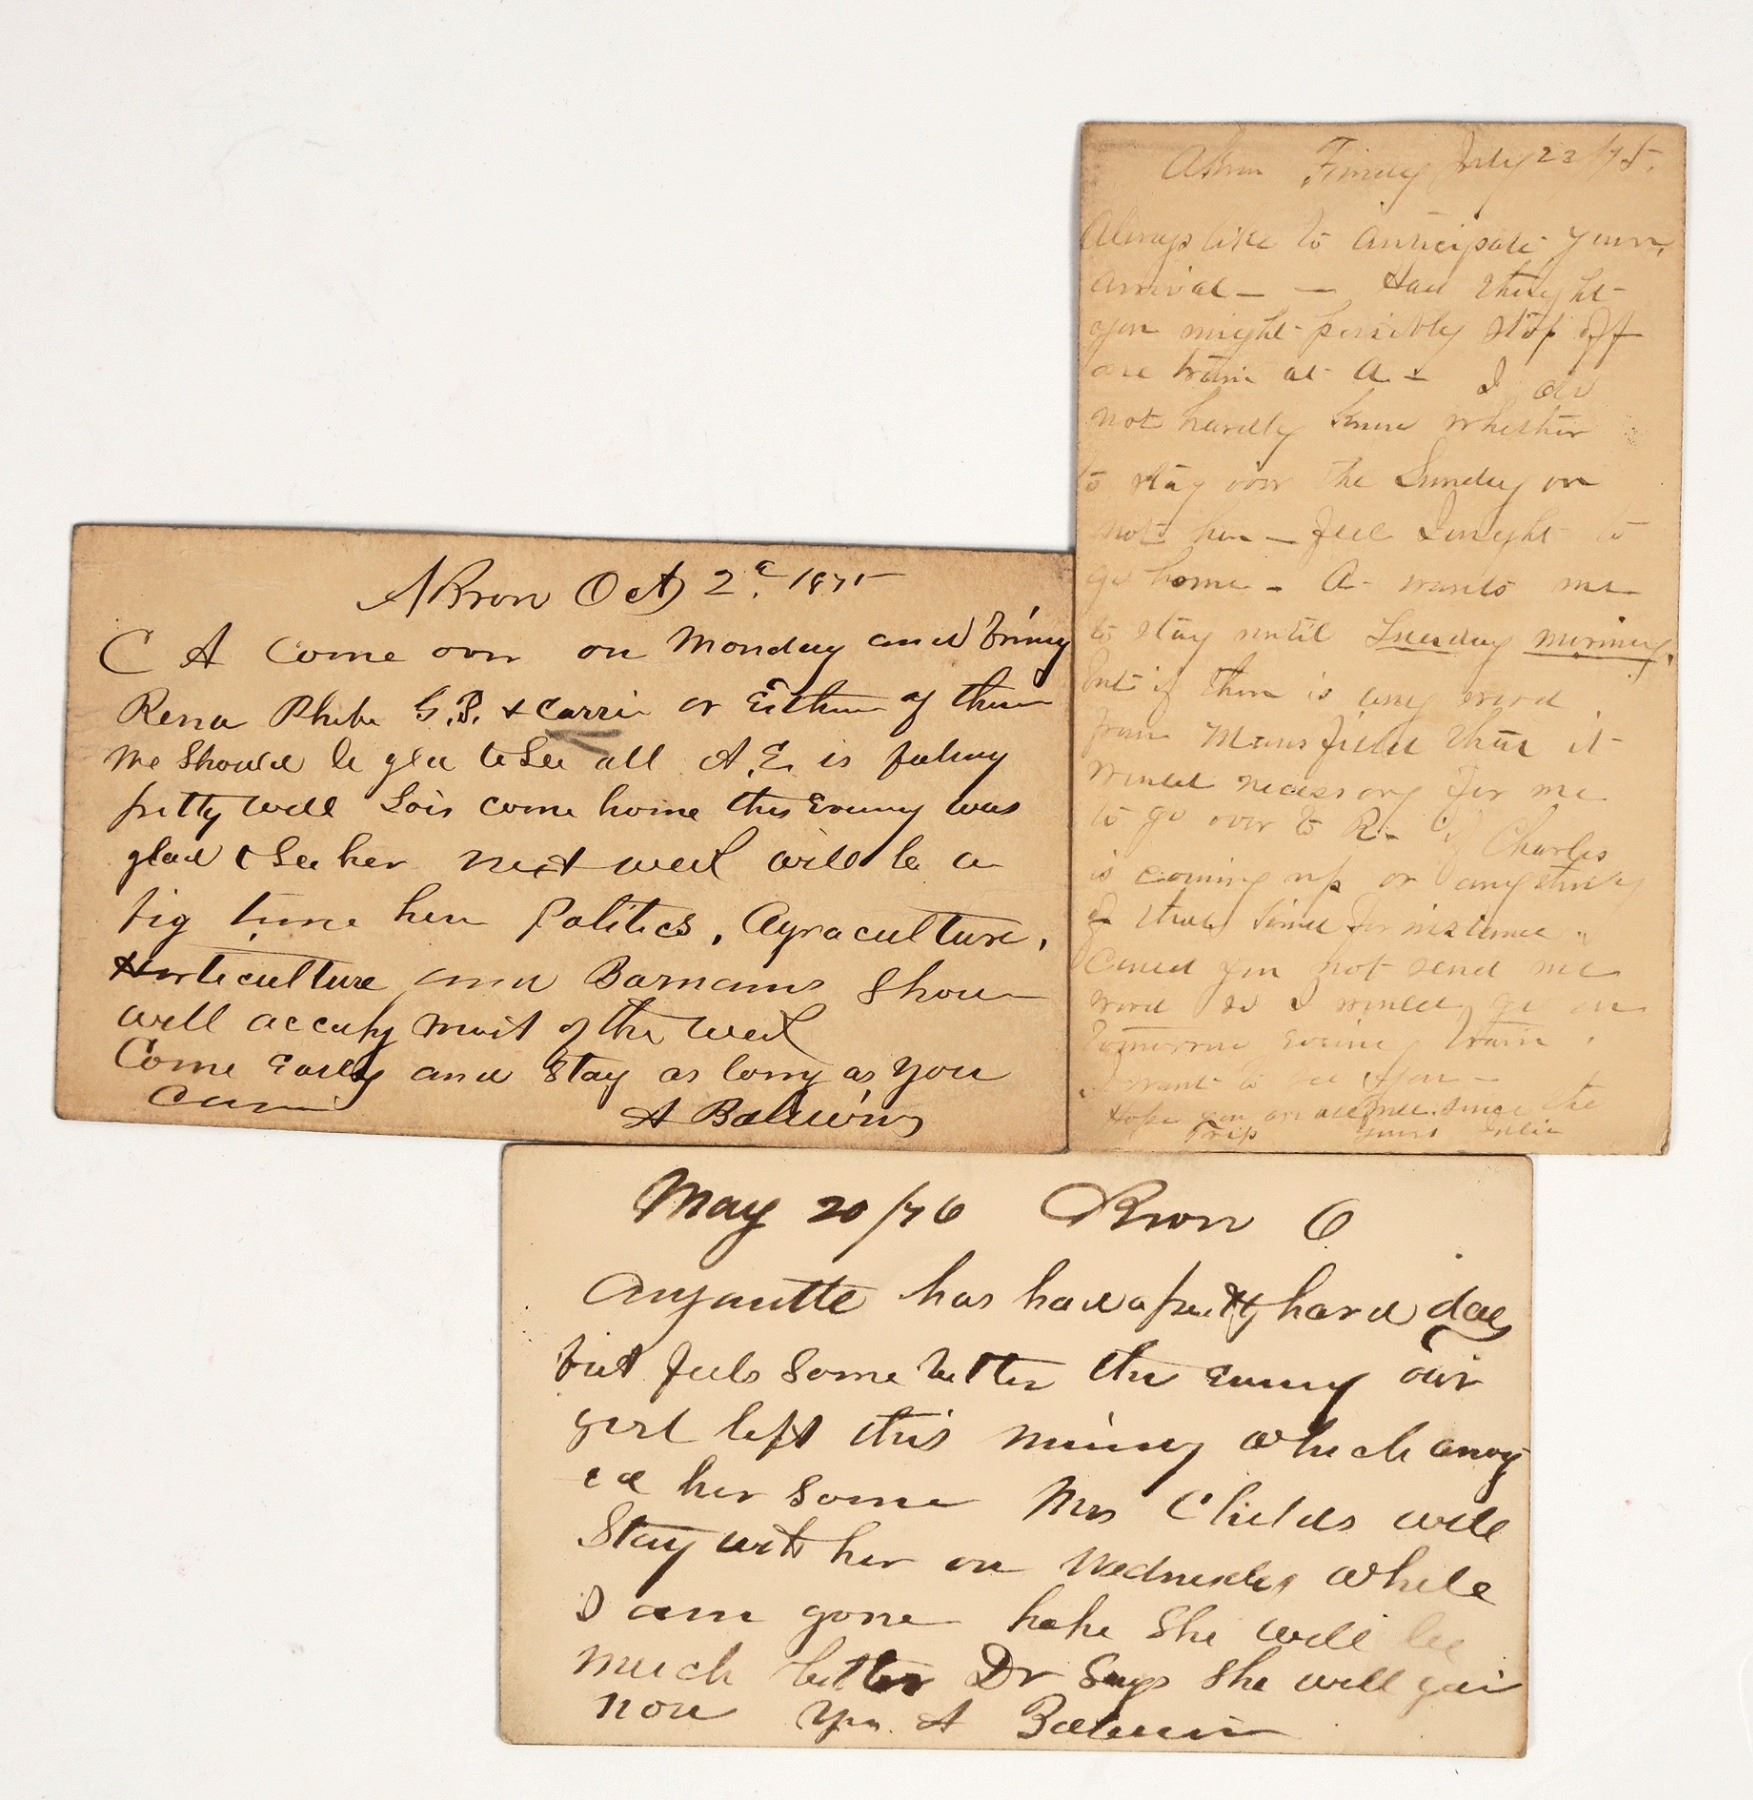 Akron Oct 2d. 1875
C A Come over on Monday and bring
Rena Phebe G.P. & Carrie or Either of them
We Should be glad to See all A.E. is feeling
pretty well Lois come home this Evening was
glad to See her next week will be a
big time here Politics, Agraculture,
Horticulture and Barnams Show
will accupy most of the week
Come Early and Stay as long as you
can
A Baldwin
Akron Friday July 23/75.
Always like to anticipate your
arrival — — Had thought
you might possibly stop off
the train at A — I do
not hardly know whether
to stay over the Sunday or
not here — feel I ought to
go home — A wants me
to stay until Tuesday morning.
but if there is any word
from Mansfield that it
would necessary for me
to go over to R — if Charles
is coming up or anything
of that kind for instance
Could you not send me
word so I would go on
tomorrow evening train.
I want to see you —
Hope you are all well since the
trip yours Julia
May 20/76 Akron O
Anjanette has had a pretty hard day
but feels Some better this evening our
girl left this morning which anoy
ed her some Mrs Childs will
Stay with her on Wednesday while
I am gone hope She will be
much better Dr Says She will gain
now Yrs. A Baldwin